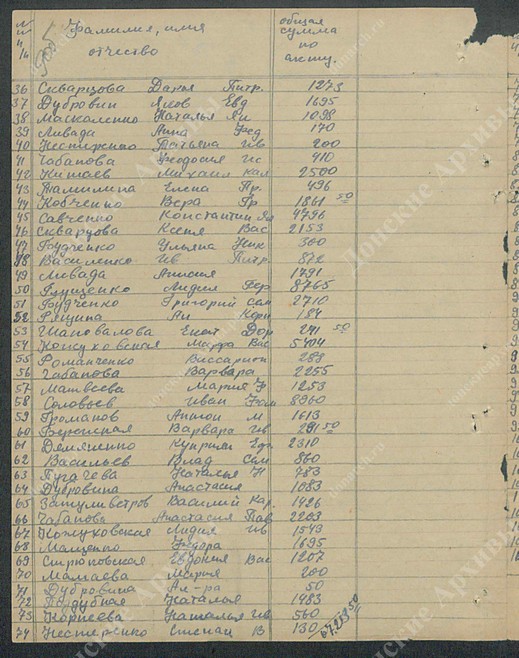 NN п/п Фамилия, имя отчество общая сумма по акту
36 Скварцова Дарья Питр. 1273
37 Дубровин Яков Евд 1695
38 Маскаленко Наталья Як 1098
39 Ливада Анна Фед 170
40 Нестиренко Татьяна Ив 200
41 Чабанова Феодосия Ис 410
42 Китаев Михаил Кал 2500
43 Елена Пр. 496
44 Кобченко Вера Гр 1861 50
45 Савченко Константин Як 4796
46 Скварцова Ксеня Вас 2153
47 Будченко Ульяна Ник 360
48 Василенко Ив Питр. 872
49 Ливада Анисия 1791
50 Глущенко Лидия Фер 8765
51 Будченко Григорий Сам 2710
52 Рящина Ан Корн 184
53 Шаповалова Екат Дор 241 50
54 Кожуховская Марфа Вас 5404
55 Романченко Виссарион 288
56 Чабанова Варвара 2255
57 Матвеева Мария Н 1253
58 Соловьев Иван Фом 8960
59 Громанов М 1613
60 Варвара Ив 291 50
61 Демяненко Куприян Еф. 2310
62 Васильев Влад Сам 860
63 Пугачева Наталья Н 783
64 Дубровина Анастасия 1083
65 Василий Кар. 1426
66 Чабанова Анастасия Пав 2203
67 Кожуховская Лидия Ив 1543
68 Маценко Федора 1695
69 Стрюковская Евдокия Вас 1207
70 Мамаева Мария 200
71 Дубровина Ал-ра 50
72 Поддубная Наталья 1483
73 Корнеева Наталья Ив 560
74 Нестеренко Степан В 130
67.259 50
Донские Архивы